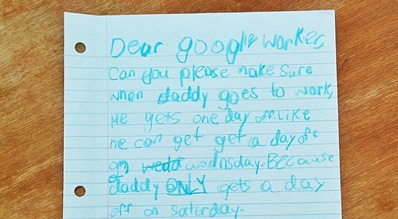 Dear google worker,
Can you please make sure
when daddy goes to work,
He gets one day off. Like
he can get get a day off
on wednsday. BECause
daddy ONLY gets a day
off on saturday.